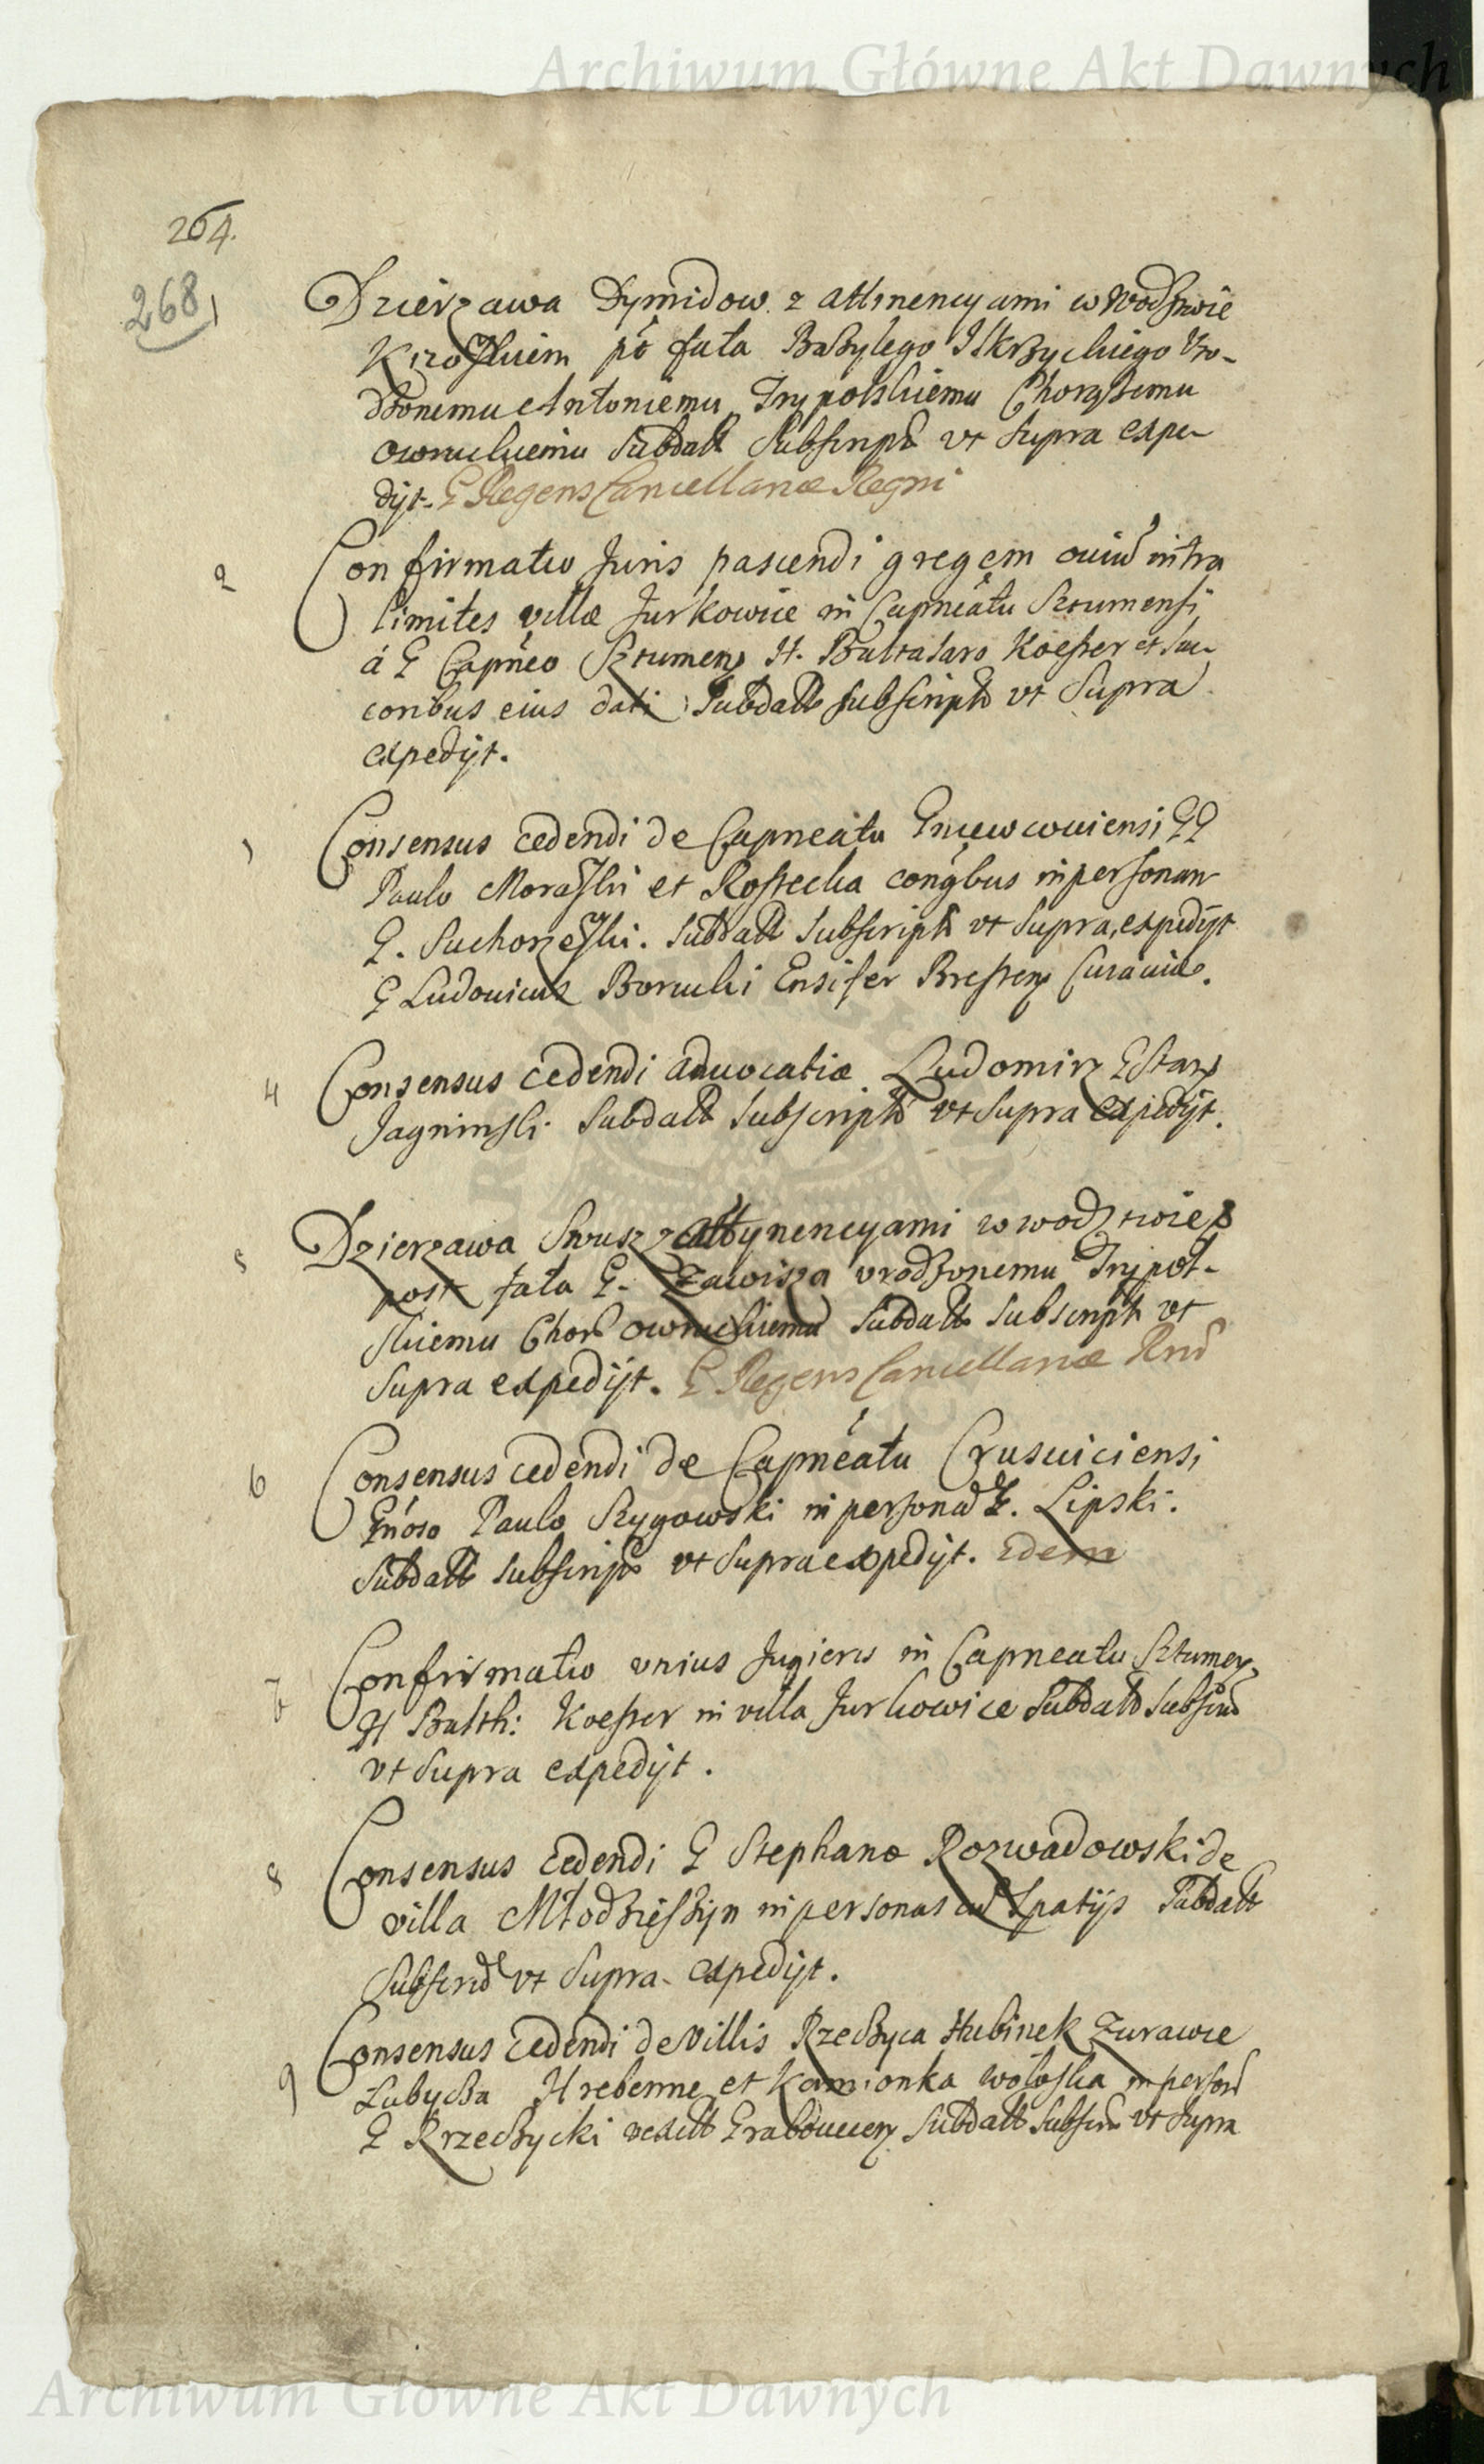 Archiwum Główne Akt Dawnych
264.
268
Dzierzawa Dymidow z attinencyami w Wodztwie
Kiioskiem po fata Bazylego Iskrzyckiego Vro-
dzonemu Antoniemu Trypolskiemu Chorązemu
owruckiemu Subdatt Subscript vt supra expe-
dijt. G Regens Cancellariæ Regni
2 Confirmatio Juris pascendi gregem ouiū intra
limites villæ Jurkowice in Capneatu Sztumensi
á G Capneo Sztumens H. Baltasaro Koester et suc
coribus eius dati Subdatt subscript vt Supra
expedijt.
Consensus cedendi de Capneatu Gniewcouiensi GG
Paulo Moraski et Rostecka congbus in personam
G. Suchorzeski. Subdatt Subscript vt supra, expedijt
G Ludouicus Borucki Ensifer Brestens Cuiauiæ.
4 Consensus cedendi aduocatiæ Ludomirz G Stans
Jagninski. Subdatt Subscript vt Supra expedijt.
5 Dzierzawa Srusz z attynencyami w wodztwie
post fata G. Zawisza vrodzonemu Trypol-
skiemu Chor owruckiemu Subdatt Subscript vt
Supra expedijt. G Regens Cancellariæ Rni
6 Consensus cedendi de Capneatu Crusuiciensi
Gnoso Paulo Szygowski in persona G. Lipski.
Subdatt subscript vt Supra expedijt. Idem
7 Confirmatio vnius Jugieris in Capneatu Sztumens
H Balth: Koester in villa Jurkowice Subdatt subscrip
vt Supra expedijt.
8 Consensus cedendi G Stephano Rozwadowski de
villa Młodzieszyn in personas cū Spatijs Subdatt
Subscrip vt Supra expedijt.
9 Consensus cedendi de Villis Rzeczyca Hubinek Zurawce
Lubycza Hrebenne et Kamionka wołoska in person
G Rzeczycki vexill Grabouecens Subdatt Subscrip vt Supra
Archiwum Główne Akt Dawnych